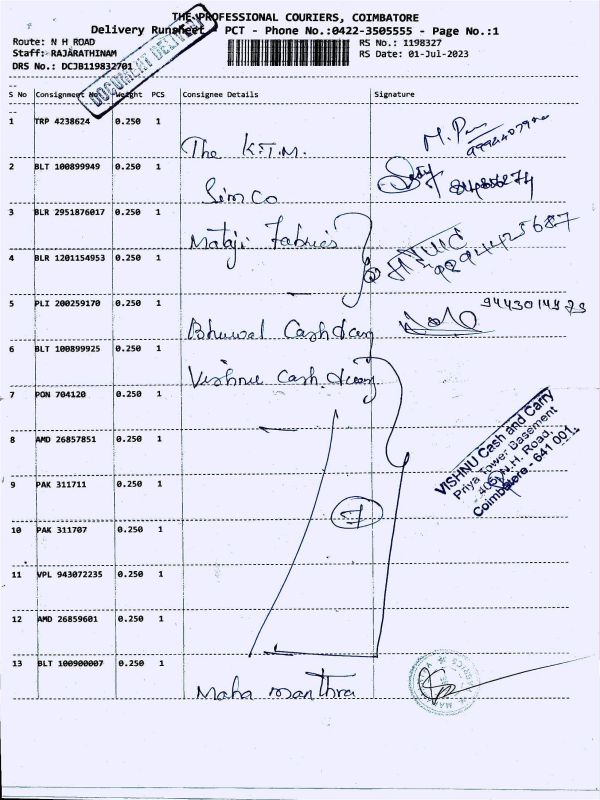 THE PROFESSIONAL COURIERS, COIMBATORE
Delivery Runsheet PCT - Phone No.:0422-3505555 - Page No.:1
Route: N H ROAD RS No.: 1198327
Staff: RAJARATHINAM RS Date: 01-Jul-2023
DRS No.: DCJB119832701
DOCUMENT DELIVERY
S No Consignment No. Weight PCS Consignee Details Signature
1 TRP 4238624 0.250 1
The K.T.M.
2 BLT 100899949 0.250 1
Simco
3 BLR 2951876017 0.250 1
Mataji Fabrics
4 BLR 1201154953 0.250 1
2 9294425687
5 PLI 200259170 0.250 1
Bhuwal Cash &
6 BLT 100899925 0.250 1
Vishnu Cash &
7 PON 704120 0.250 1
8 AMD 26857851 0.250 1
VISHNU Cash and Carry
Priya Tower Basement
405, N.H. Road,
Coimbatore - 641 001.
9 PAK 311711 0.250 1
7
10 PAK 311707 0.250 1
11 VPL 943072235 0.250 1
12 AMD 26859601 0.250 1
13 BLT 100900007 0.250 1
Maha manthra